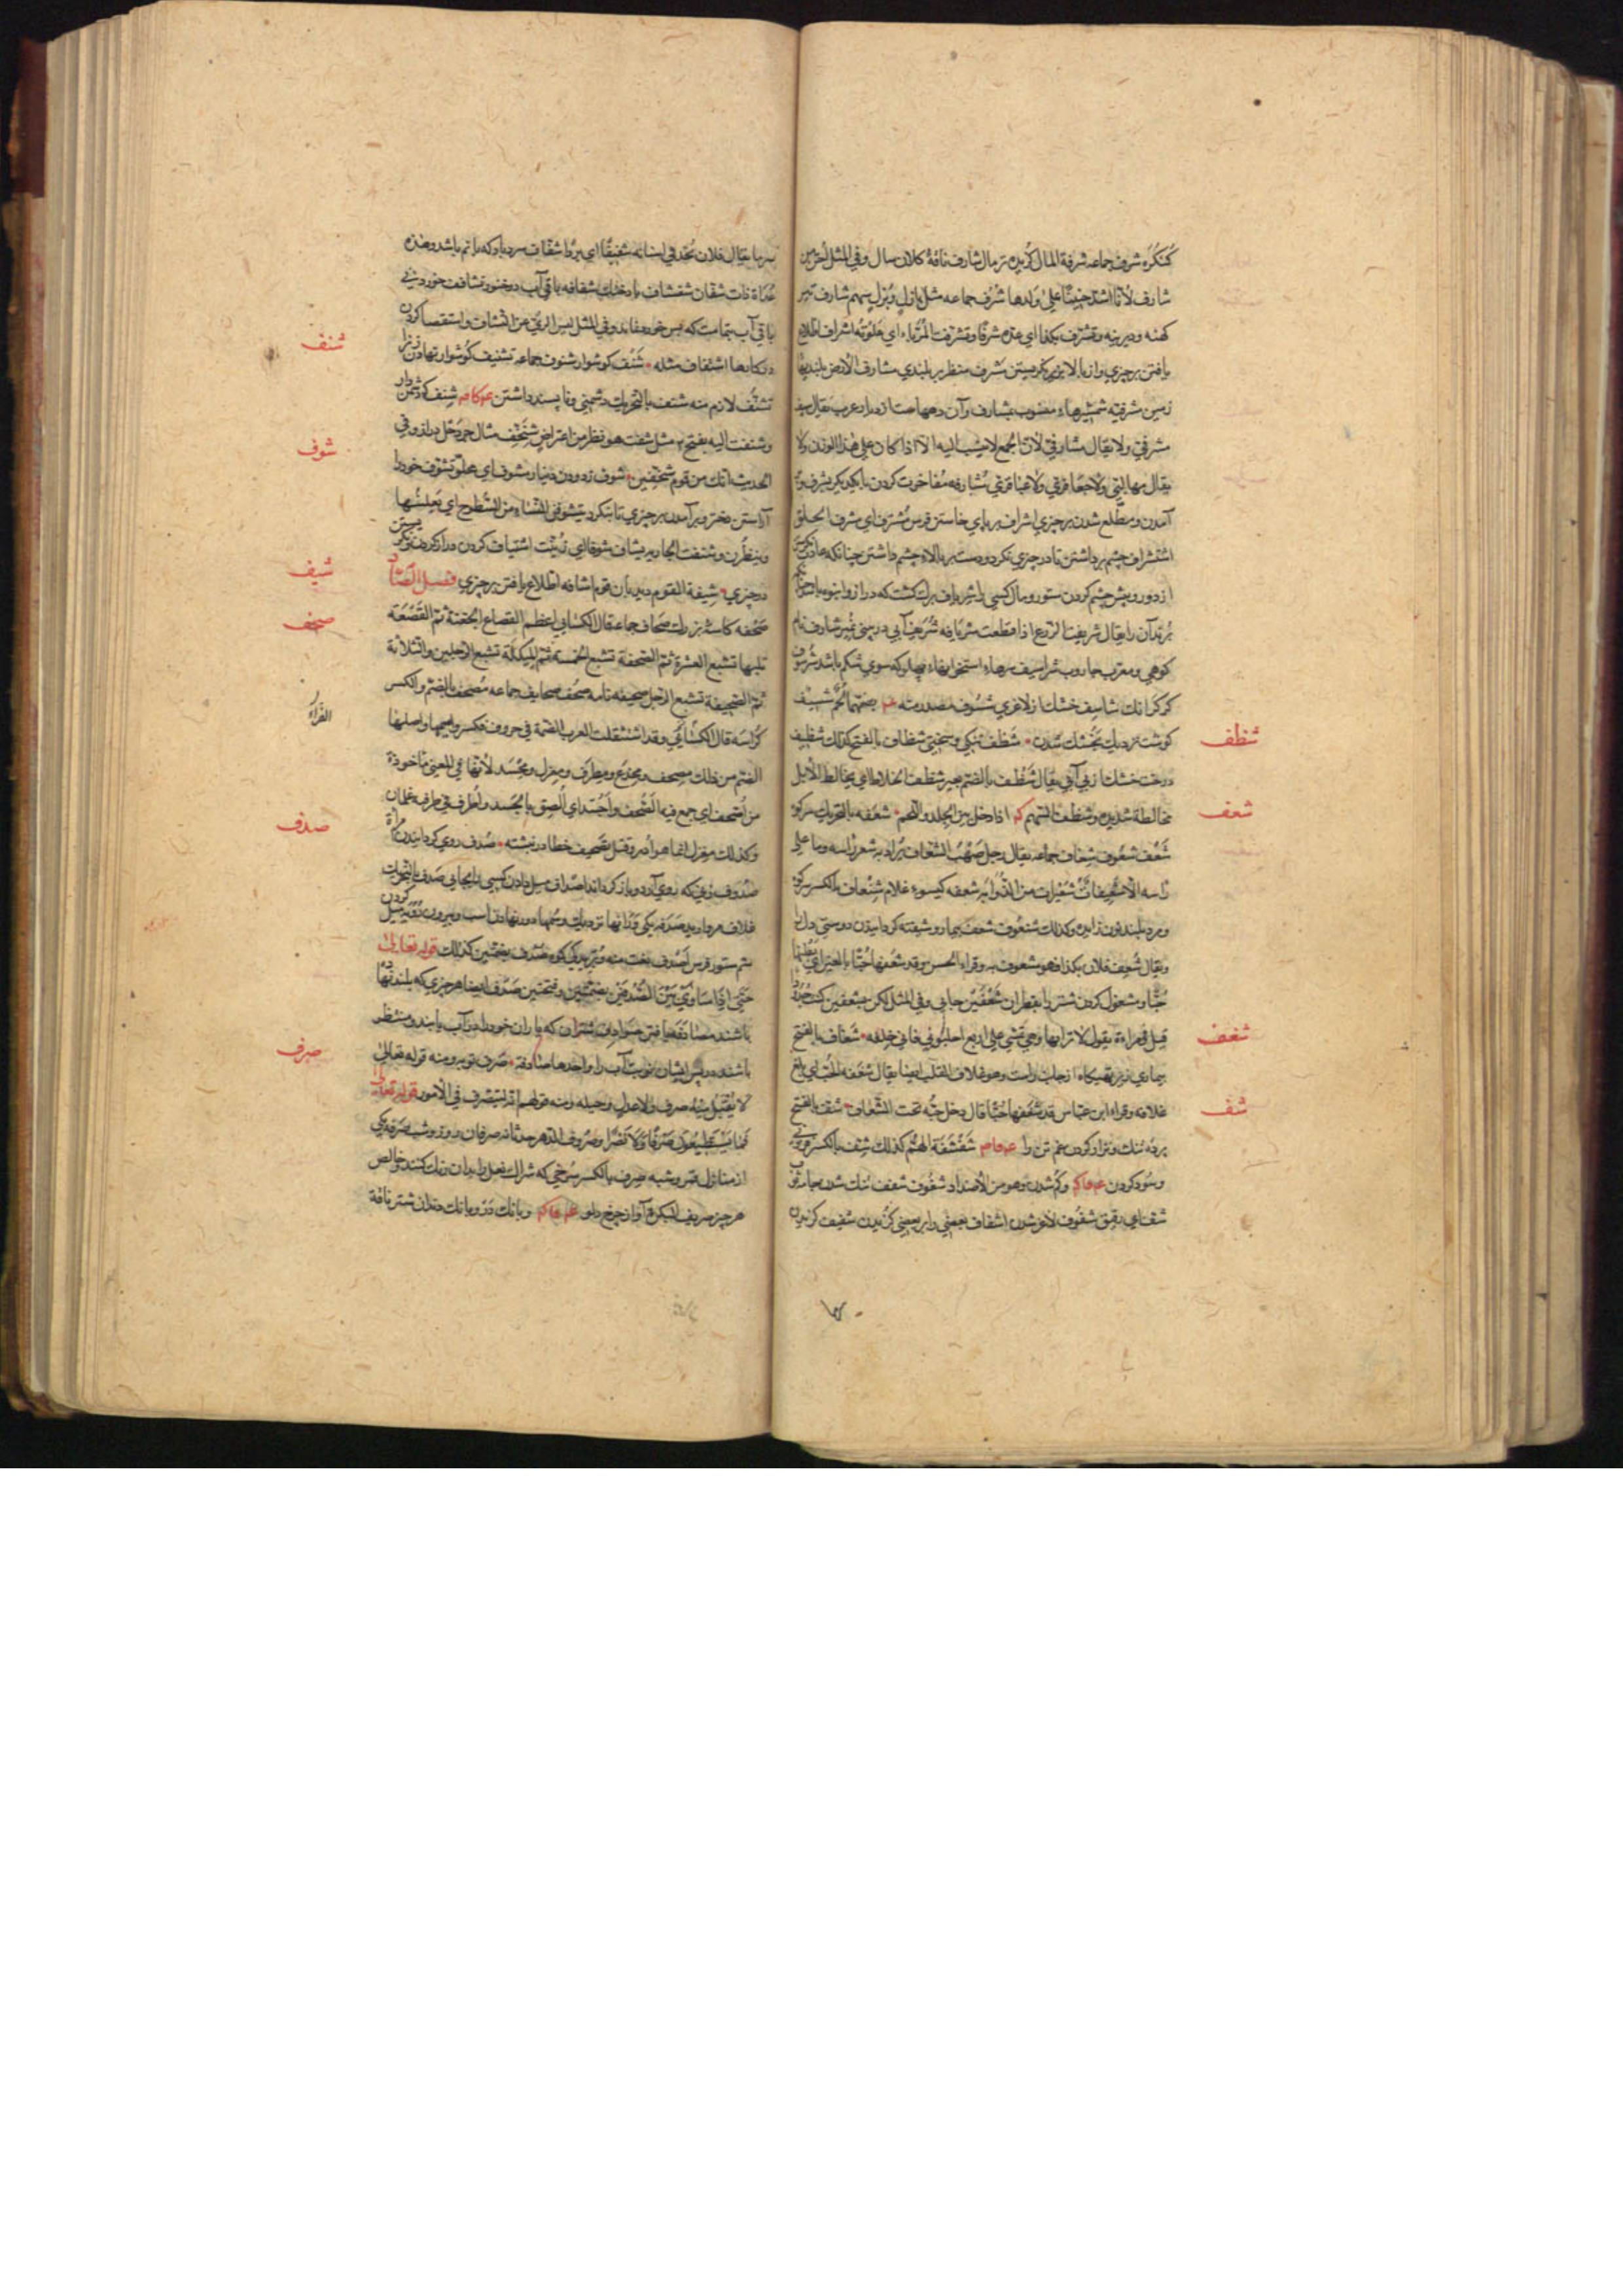 كنگره شرف جماعه شرفة المال گزيده تر مال شارف ناقۀ كلان سال وفي المثل
شارف لأنها اشد حنينا على ولدها شرف جماعه مثل بازل وبزل سهم شارف تير
كهنه وديرينه وتشرف بكذا اي عده شرفا وتشرفت المرباء اي علوته اشراف اطلاع
يافتن بر چيزي واز بالا بزير نگريستن مشرف منظر بر بلندي مشارف الارض بلنديها
زمين مشرفيه شمشيرهاء منسوب بمشارف وآن دهها ست از عرب يقال سيف
مشرفي ولا يقال مشارفي لان الجمع لا ينسب اليه الا اذا كان على هذا الوزن ولا
يقال مهالبي ولا جعافري ولا عباقري مشارفه مفاخرت كردن با يكديگر بشرف
آمدن ومطلع شدن بر چيزي اشراف بر پاي خاستن فرس مشترف اي مشرف الخلق
استشراف چشم برداشتن تا در چيزي نگرد ودست بر بالاء چشم داشتن چنانكه عادت
از دور وبيش چشم كردن ستور ومال كسي را شرياف برگ كشت كه دراز وانبوه باشد
برند آن را يقال شريفت الزرع اذا قطعت شريافه شرعين آبي در بني نمير شارف نام
كوهي ومعرب جاروب شراسيف سرهاء استخوانهاء پهلو كه سوي شكم باشد شرسوف
كركرانك شاسف خشك از لاغري شسوف مصدر منه بضمهما شسيف
گوشت نزديك بخشك شدن شظف تنگي وسختي شظاف بالفتح كذلك شظيف
درخت خشك از بي آبي يقال شظف بالضم بعير شظف الخلاط اي يخالط الابل
مخالطة شديدة وشظف السهم اذا دخل بين الجلد واللحم شعفه بالتحريك سر كوه
شعف شعوف شعاف جماعه يقال رجل صهب الشعاف يراد به شعر راسه وما على
راسه الا شعيفات شعيرات من الذوابه شعفه گيسوء غلام شنعاف بالكسر سر كوه
ومرد بلند نون زايده وكذلك شنعوف شعف بيمار وشيفته گردانيدن دوستي دل را
ويقال شعف فلان بكذا فهو مشعوف به وقراء الحسن وقد شعفها حبا بالعين اي بطنها
حبا ومشغول كردن شتر را بقطران شعفين جايي وفي المثل لكن بشعفين كنت جدود
قيل في مراءة يقول لاترابها وهي تمشي على اربع احلبوني فاني خلفه شغاف بالفتح
بيماري زير تهيگاه از جانب راست وهو غلاف القلب ايضا يقال شغفه الحب اي بلغ
غلافه وقراء ابن عباس قد شغفها حبا قال دخل حبه تحت الشغاف شف بالفتح
پرده تنك ونزار كردن غم تن را شفشفة الهم كذلك شف بالكسر فزوني
وسود كردن وكم شدن وهو من الاضداد شفوف شفف تنك شدن جامه ثوب
شف اي رقيق شفوف لاغر شدن اشفاف بعضي را بر بعضي گزيدن شفيف گزيدن
سرما يقال فلان يجد في اسنانه شفيفا اي بردا شفان سرد باد كه با نم باشد وهذه
غداة ذات شفان شفشاف باد خنك شفافه باقي آب در خنور تشاف خوردن
باقي آب بتمامت كه پس خورده ماند وفي المثل ليس الري عن التشاف واستقصا كردن
در كارها اشتفاف مثله شنف گوشوار شنوف جماعه تشنيف گوشوار نهادن زن را
تشنف لازم منه شنف بالتحريك دشمني وناپسند داشتن شنف كه دشمن دار
وشنفت اليه بفتح مثل شفنت هو نظر من اعراض شنحف مثال جردحل دراز وفي
الحديث انك من قوم شنحفين شوف زدودن دينار مشوف اي مجلو تشوف خود را
آراستن دختر وبر آمدن بر چيزي تا بنگرد يتشوفن النساء من السطوح اي يطلعن
وينظرن وشيفت الجارية يشاف شوفا اي زينت اشتياف گردن دراز كردن ونگريستن
در چيزي شيفة القوم ديدبان قوم اشافه اطلاع يافتن بر چيزي فصل الصاد
صحفه كاسۀ بزرگ صحاف جماعه قال الكسائي اعظم القصاع الجفنة ثم القصعة
تليها تشبع العشرة ثم الصحفة تشبع الخمسة ثم الميكلة تشبع الرجلين والثلاثة
ثم الصحيفة تشبع الرجل صحيفه نامه صحف صحايف جماعه مصحف بالضم والكسر
كراسه قال الفراء وقد استثقلت العرب الضمة في حروف فكسروا ميمها واصلها
الضم من ذلك مصحف ومخدع ومطرف ومغزل ومجسد لانها في المعني ماخوذة
من اصحف اي جمع فيه الصحف واجسد اي الصق بالجسد واطرف في طرفيه علمان
وكذلك مغزل انما هو ادير وفتل تصحيف خطا در نبشته صدف روي گردانيدن
صدوف زني كه روي آرد وباز گرداند اصداف ميل دادن كسي را بجايي صدف بالتحريك
غلاف مرواريد صدفه يكي ورانها نزديك وسمها دور نهادن اسب وبيرون سو ميل كردن
سم ستور فرس اصدف نعت منه وبريدگي كوه صدف بضمتين كذلك قوله تعالى
حتى اذا ساوى بين الصدفين بضمتين وفتحتين صدف ايضا هر چيزي كه بلند
باشد مصادفه يافتن صوادف شتران كه ياران خود را بر آب يابند ومنتظر
باشند در پس ايشان نوبت آب را واحدها صادفة صرف توبه ومنه قوله تعالى
لا يقبل منه صرف ولا عدل وحيله ومنه قولهم انه ليتصرف في الامور قوله تعالى
فما يستطيعون صرفا ولا نصرا وصروف الدهر حدثانه صرفان روز وشب صرفه يكي
از منازل قمر وشبه صرف بالكسر سرخي كه شراك نعل را بدان رنگ كنند وخالص
هر چيز صريف البكرة آواز چرخ دلو وبانك در وبانك دندان شتر ناقة
شظف
شعف
شغف
شف
شنف
شوف
شيف
صحف
الفراء
صدف
صرف